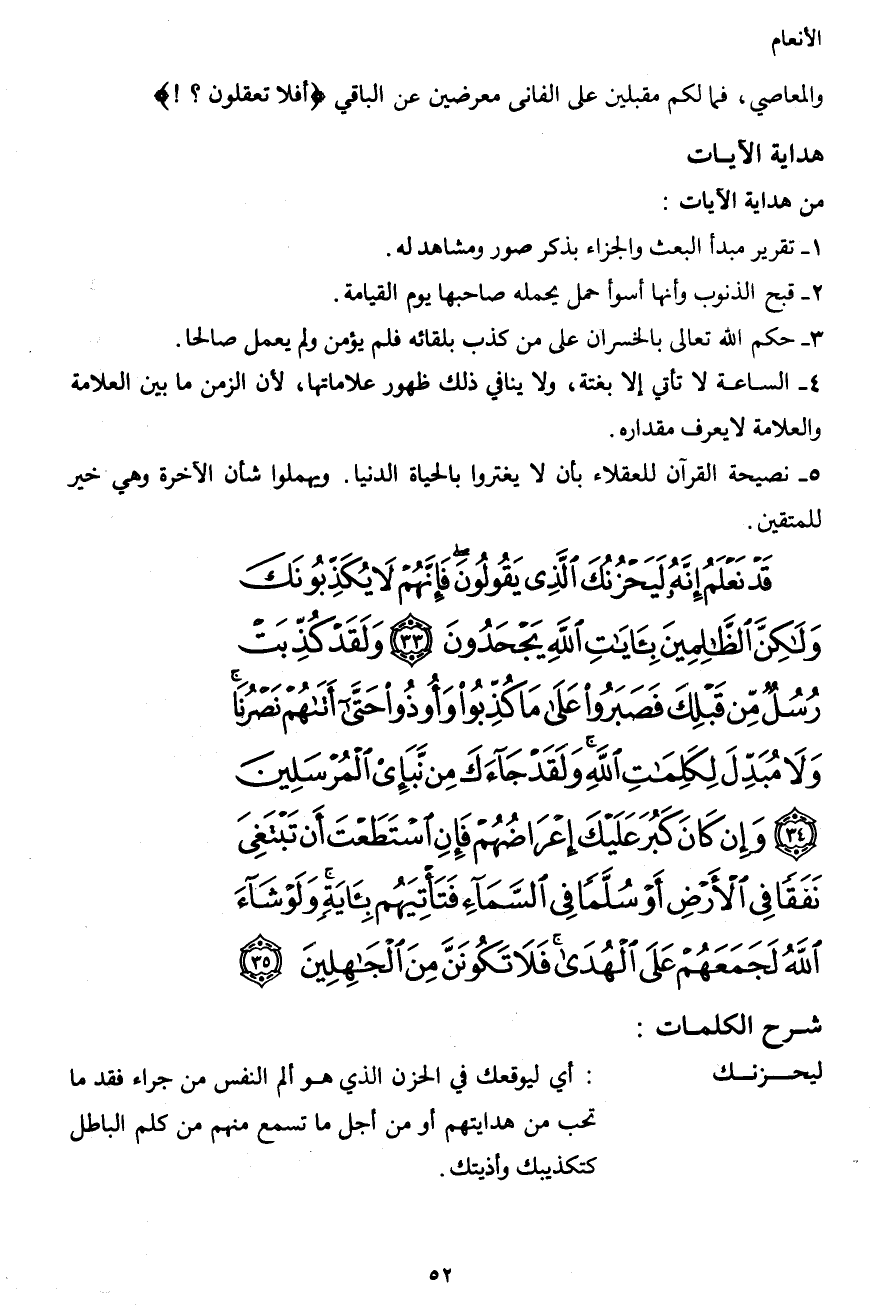 الأنعام
والمعاصي، فما لكم مقبلين على الفانى معرضين عن الباقي ﴿أفلا تعقلون ؟ !﴾
هداية الآيــات
من هداية الآيات :
١ـ تقرير مبدأ البعث والجزاء بذكر صور ومشاهد له .
٢ـ قبح الذنوب وأنها أسوأ حمل يحمله صاحبها يوم القيامة .
٣ـ حكم الله تعالى بالخسران على من كذب بلقائه فلم يؤمن ولم يعمل صالحا .
٤ـ الساعـة لا تأتي إلا بغتة، ولا ينافي ذلك ظهور علاماتها، لأن الزمن ما بين العلامة
والعلامة لايعرف مقداره .
٥ـ نصيحة القرآن للعقلاء بأن لا يغتروا بالحياة الدنيا . ويهملوا شأن الآخرة وهي خير
للمتقين .
قَدْ نَعْلَمُ إِنَّهُۥ لَيَحْزُنُكَ ٱلَّذِى يَقُولُونَۖ فَإِنَّهُمْ لَا يُكَذِّبُونَكَ
وَلَٰكِنَّ ٱلظَّٰلِمِينَ بِـَٔايَٰتِ ٱللَّهِ يَجْحَدُونَ ٣٣ وَلَقَدْ كُذِّبَتْ
رُسُلٌ مِّن قَبْلِكَ فَصَبَرُوا۟ عَلَىٰ مَا كُذِّبُوا۟ وَأُوذُوا۟ حَتَّىٰٓ أَتَىٰهُمْ نَصْرُنَاۚ
وَلَا مُبَدِّلَ لِكَلِمَٰتِ ٱللَّهِۚ وَلَقَدْ جَآءَكَ مِن نَّبَإِى۟ ٱلْمُرْسَلِينَ
٣٤ وَإِن كَانَ كَبُرَ عَلَيْكَ إِعْرَاضُهُمْ فَإِنِ ٱسْتَطَعْتَ أَن تَبْتَغِىَ
نَفَقًا فِى ٱلْأَرْضِ أَوْ سُلَّمًا فِى ٱلسَّمَآءِ فَتَأْتِيَهُم بِـَٔايَةٍۚ وَلَوْ شَآءَ
ٱللَّهُ لَجَمَعَهُمْ عَلَى ٱلْهُدَىٰۚ فَلَا تَكُونَنَّ مِنَ ٱلْجَٰهِلِينَ ٣٥
شـرح الكلمـات :
ليحـــزنــك : أي ليوقعك في الحزن الذي هـو ألم النفس من جراء فقد ما
تحب من هدايتهم أو من أجل ما تسمع منهم من كلم الباطل
كتكذيبك وأذيتك .
٥٢